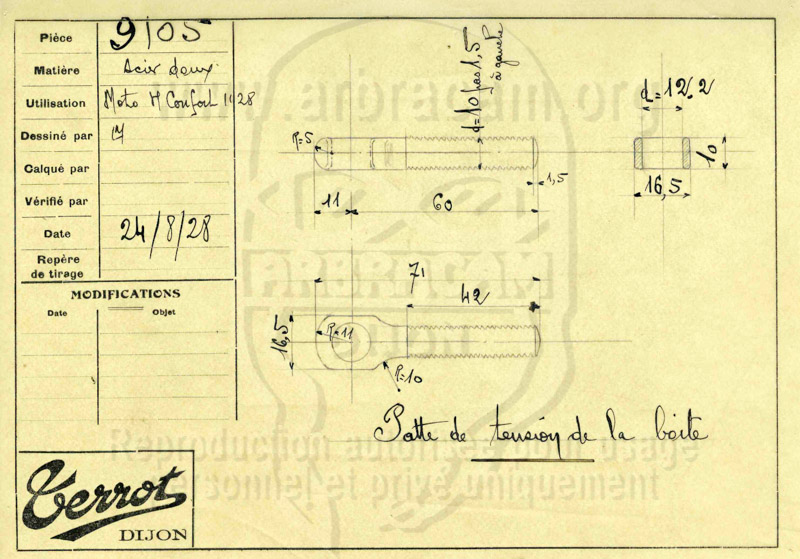 Pièce 9105
Matière Acier doux
Utilisation Moto M Confort 1928
Dessiné par
Calqué par
Vérifié par
Date 24/8/28
Repère
de tirage
MODIFICATIONS
Date Objet
Terrot
DIJON
d=10 pas 1,5
à gauche
R=5
1,5
11
60
d=12.2
10
16,5
71
42
16,5
R=11
R=10
Patte de tension de la boite
www.arbracam.org
ARBRACAM
DIJON
Reproduction autorisée pour usage
personnel et privé uniquement